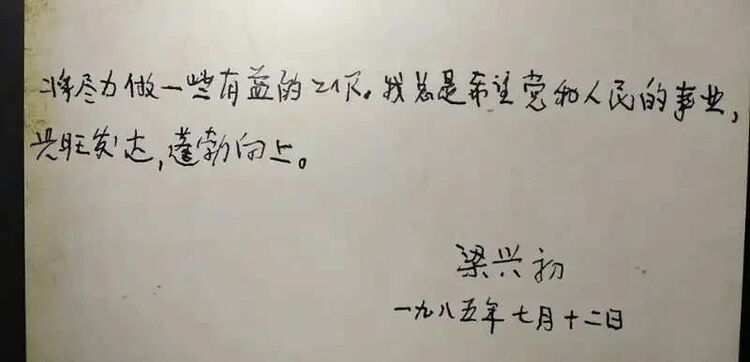 将尽力做一些有益的工作。我总是希望党和人民的事业，
兴旺发达，蓬勃向上。
梁兴初
一九八五年七月十二日